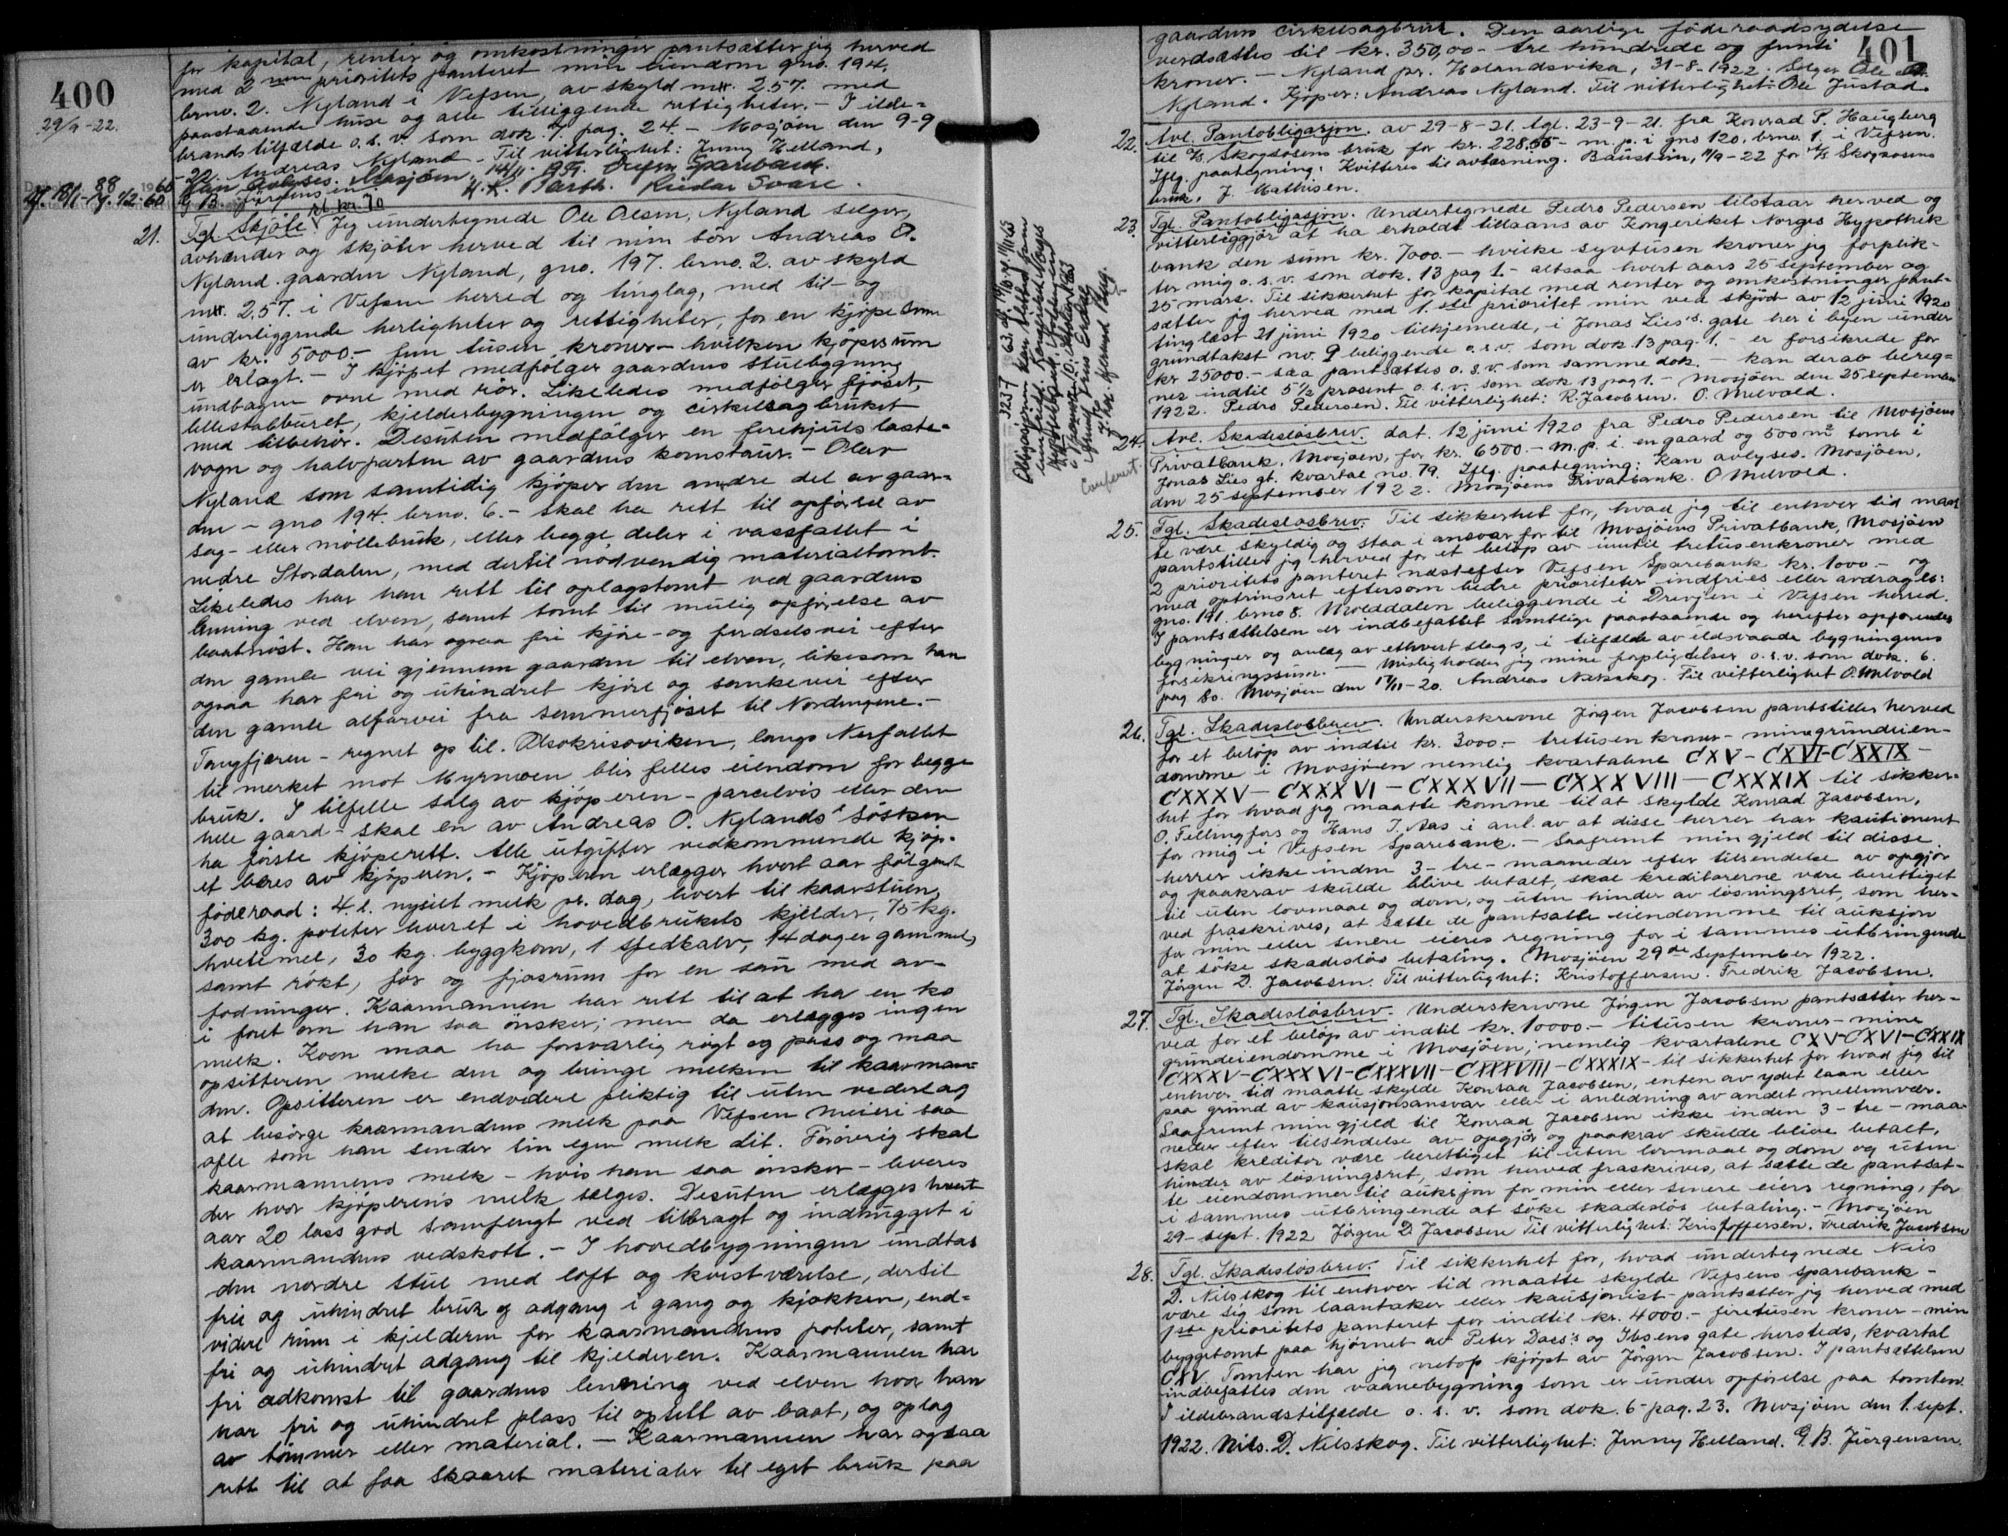 400
29/9-22.
for kapital, renter og omkostninger pantsætter jeg herved
med 2nen prioritets panteret min eiendom gno. 194,
brno. 2. Nyland i Vefsen, av skyld mrk. 2.57. med
paastaaende huse og alle tilliggende rettigheter. - I ilde-
brandstilfælde o.s.v. som dok. 7. pag. 24. - Mosjøen den 9-9
-22. Andreas Nyland. Til vitterlighet: Jenny Helland,
G. B. Jürgensen.
Kan avlyses. Mosjøen,
Reidar Svare.
21.
Tgl. Skjøte. Jeg undertegnede Ole Olsen, Nyland selger,
avhænder og skjøter herved til min søn Andreas O.
Nyland gaarden Nyland, gno. 197. brno. 2. av skyld
mrk. 2,57. i Vefsen herred og tinglag, med til- og
underliggende herligheter og rettigheter, for en kjøpesum
av kr. 5000.- fem tusen kroner - hvilken kjøpesum
er erlagt. - I kjøpet medfølger gaardens stuebygning
undtagen ovne med rør. Likeledes medfølger fjøset,
lillestabburet, kjelderbygningen og cirkelsagbruket
med tilbehør. Desuten medfølger en firehjuls laste-
vogn og halvparten av gaardens kornstaur. - Olav
Nyland som samtidig kjøper den andre del av gaar-
den - gno 194. brno. 6. - skal ha rett til opførsel av
sag- eller møllebruk, eller begge deler i vassfallet i
nedre Stordalen, med dertil nødvendig materialtomt.
Likeledes har han rett til oplagstomt ved gaardens
lenning ved elven, samt tomt til mulig opførelse av
baatnøst. Han har ogsaa fri kjøre- og ferdselsvei efter
den gamle vei gjennem gaarden til elven, likesom han
ogsaa har fri og uhindret kjøre og sankevei efter
den gamle alfarvei fra sommerfjøset til Nordengene. -
Tangfjæren - regnet op til Olsokrisoviken, langs Nerfallet
til merket mot Myrnesen blir felles eiendom for begge
bruk. I tilfelle salg av kjøperen - parcelvis eller den
hele gaard - skal en av Andreas O. Nylands søsken
ha første kjøperett. Alle utgifter vedkommende kjøp-
et bæres av kjøperen. - Kjøperen erlægger hvert aar følgende
føderaad: 4. l. nysilt melk pr. dag, levert til kaarstuen,
300 kg. poteter leveret i hovedbrukets kjelder, 75 kg.
hvetemel, 30 kg. byggkorn, 1 spedkalv, 14 dager gammel,
samt røkt, for og fjøsrum for en sau med av-
fødninger. Kaarmannen har rett til at ha en ko
i foret om han saa ønsker; men da erlægges ingen
melk. Koen maa ha forsvarlig røgt og pass og maa
opsitteren melke den og bringe melken til kaarman-
den. Opsitteren er endvidere pliktig til uten vederlag
at besørge kaarmandens melk paa Vefsen meieri saa
ofte som han sender sin egen melk dit. Forøvrig skal
kaarmannens melk - hvis han saa ønsker - leveres
der hvor kjøperens melk selges. Desuten erlægges hvert
aar 20 lass god samfengt ved tilbragt og indhugget i
kaarmandens vedskott. - I hovedbygningen undtas
den nordre stue med loft og kvistværelse, dertil
fri og uhindret bruk og adgang i gang og kjøkken, end-
videre rum i kjelderen for kaarmandens poteter, samt
fri og uhindret adgang til kjelderen. Kaarmannen har
fri adkomst til gaardens lenning ved elven hvor han
har fri og uhindret plass til opsett av baat, og oplag
av tømmer eller material. - Kaarmannen har ogsaa
rett til at faa skaaret materialer til eget bruk paa
401
gaardens cirkelsagbruk. Den aarlige føderaadsydelse
verdsættes til kr. 350,00 - tre hundrede og femti
kroner. - Nyland pr. Holandsvika, 31-8-1922. Selger Ole
Nyland. Kjøper: Andreas Nyland. Til vitterlighet: Ole Justad.
22.
Avl. Pantobligasjon. av 29-8-21. tgl. 23-9-21. fra Konrad P. Haugberg
til A/S Skogsøsens bruk for kr. 228.55 - m. p. i gno 120. brno. 1. i Vefsen.
Iflg. paategning: Kvitteres til avlæsning. Baustein, 11/9-22 for A/S Skogsøsens
bruk, J. Mathisen.
23.
Tgl. Pantobligasjon. Undertegnede Pedro Pedersen tilstaar herved og
vitterliggjør at ha erholdt tillaans av Kongeriket Norges Hypothek-
bank den sum kr. 7000.- hvilke syvtusen kroner jeg forplik-
ter mig o.s.v. som dok. 13 pag 1. - altsaa hvert aars 25 september og
25 mars. Til sikkerhet for kapital med renter og omkostninger pant-
sætter jeg herved med 1.ste prioritet min ved skjøte av 12 juni 1920
tinglæst 21 juni 1920 tilhjemlede, i Jonas Lies's. gate her i byen under
grundtakst no. 9 beliggende o.s.v. som dok 13 pag. 1. - er forsikrede for
kr 25000.- saa pantsættes o.s.v. som samme dok. - kan derav bereg-
nes indtil 5 1/2 prosent o.s.v. som dok 13 pag 1. - Mosjøen den 25 september
1922. Pedro Pedersen. Til vitterlighet: R. Jacobsen. O. Melvold.
24.
Avl. Skadesløsbrev. dat. 12 juni 1920 fra Pedro Pedersen til Mosjøens
Privatbank, Mosjøen, for kr. 6500 - m. p. i en gaard og 500 m² tomt i
Jonas Lies gt. kvartal no. 79. Iflg. paategning: Kan avlyses. Mosjøen,
den 25 september 1922. Mosjøens Privatbank. O Melvold.
Confereret
25.
Tgl. Skadesløsbrev. Til sikkerhet for, hvad jeg til enhver tid maat-
te være skyldig og staa i ansvar for til Mosjøens Privatbank, Mosjøen
pantstiller jeg herved for et beløp av inntil tretusenkroner med
2 prioritets panteret næstefter Vefsen Sparebank kr. 1000 - og
med optrinsret eftersom bedre prioriteter indfries eller avdrages:
gno. 191. brno 8. Molddalen beliggende i Drevjen i Vefsen herred.
I pantsættelsen er indbefattet samtlige paastaaende og herefter opførendes
bygninger og anlæg av ethvert slags, i tilfælde av ildsvaade bygningenes
forsikringssum. - Misligholder jeg mine forpligtelser o.s.v. som dok. 6.
pag 60. Mosjøen den 17/11-20. Andreas Nilsskog. Til vitterlighet O. Melvold
26.
Tgl. Skadesløsbrev. Underskrevne Jørgen Jacobsen pantstiller herved
for et beløp av indtil kr. 3000.- tretusen kroner - mine grundeien-
domme i Mosjøen nemlig kvartalene CXV - CXVI - CXXIX -
CXXXV - CXXXVI - CXXXVII - CXXXVIII - CXXXIX til sikker-
het for hvad jeg maatte komme til at skylde Konrad Jacobsen,
O. Fellingfors og Hans J. Aas i anl. av at disse herrer har kautionert
for mig i Vefsen Sparebank. - Saafremt min gjeld til disse
herrer ikke inden 3 - tre - maaneder efter tilsendelse av opgjør
og paakrav skulde blive betalt, skal kreditorerne være berettiget
til uten lovmaal og dom, og uten hinder av løsningsret, som her-
ved fraskrives, at sætte de pantsatte eiendomme til auksjon
for min eller senere eieres regning for i sammes utbringende
at søke skadesløs betaling. Mosjøen 29de September 1922.
Jørgen D. Jacobsen. Til vitterlighet: Kristoffersen. Fredrik Jacobsen.
27.
Tgl. Skadesløsbrev. Underskrevne Jørgen Jacobsen pantsætter her-
ved for et beløp av indtil kr. 10000.- titusen kroner - mine
grundeiendomme i Mosjøen, nemlig kvartalene CXV - CXVI - CXXIX
CXXXV - CXXXVI - CXXXVII - CXXXVIII - CXXXIX - til sikkerhet for hvad jeg til
enhver tid maatte skylde Konrad Jacobsen, enten av ydet laan eller
paa grund av kausjonsansvar eller i anledning av andet mellemvær.
Saafremt min gjeld til Konrad Jacobsen ikke inden 3 - tre - maa-
neder efter tilsendelse av opgjør og paakrav skulde blive betalt,
skal kreditor være berettiget til uten lovmaal og dom og uten
hinder av løsningsret, som herved fraskrives, at sætte de pantsat-
te eiendommer til auksjon for min eller senere eiers regning, for
i sammes utbringende at søke skadesløs betaling. - Mosjøen
29 - sept. 1922 Jørgen D. Jacobsen Til vitterlighet: Kristoffersen. Fredrik Jacobsen
28.
Tgl. Skadesløsbrev. Til sikkerhet for, hvad undertegnede Nils
D. Nilsskog til enhver tid maatte skylde Vefsens sparebank -
være sig som laantaker eller kausjonist - pantsætter jeg herved med
1ste prioritets panteret for indtil kr. 4000.- firetusen kroner - min
byggetomt paa hjørnet av Peter Dass's og Ibsens gate hersteds, kvartal
CXV. Tomten har jeg netop kjøpt av Jørgen Jacobsen. I pantsættelsen
indbefattes den vaanebygning som er under opførelse paa tomten.
I ildebrandstilfælde o. s. v. som dok. 6 - pag. 23. Mosjøen den 1. sept.
1922. Nils. D. Nilsskog. Til vitterlighet: Jenny Helland. G. B. Jürgensen.